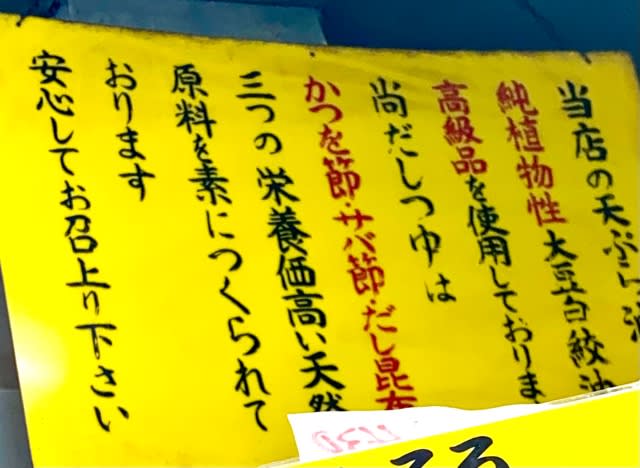 当店の天ぷら油
純植物性大豆白絞油
高級品を使用しておりま
尚だしつゆは
かつを節・サバ節・だし昆布
三つの栄養価高い天然
原料を素につくられて
おります
安心してお召上り下さい